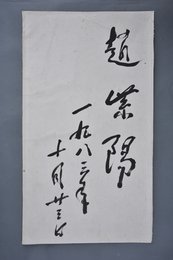 趙紫陽
一九八三年
十月廿三日